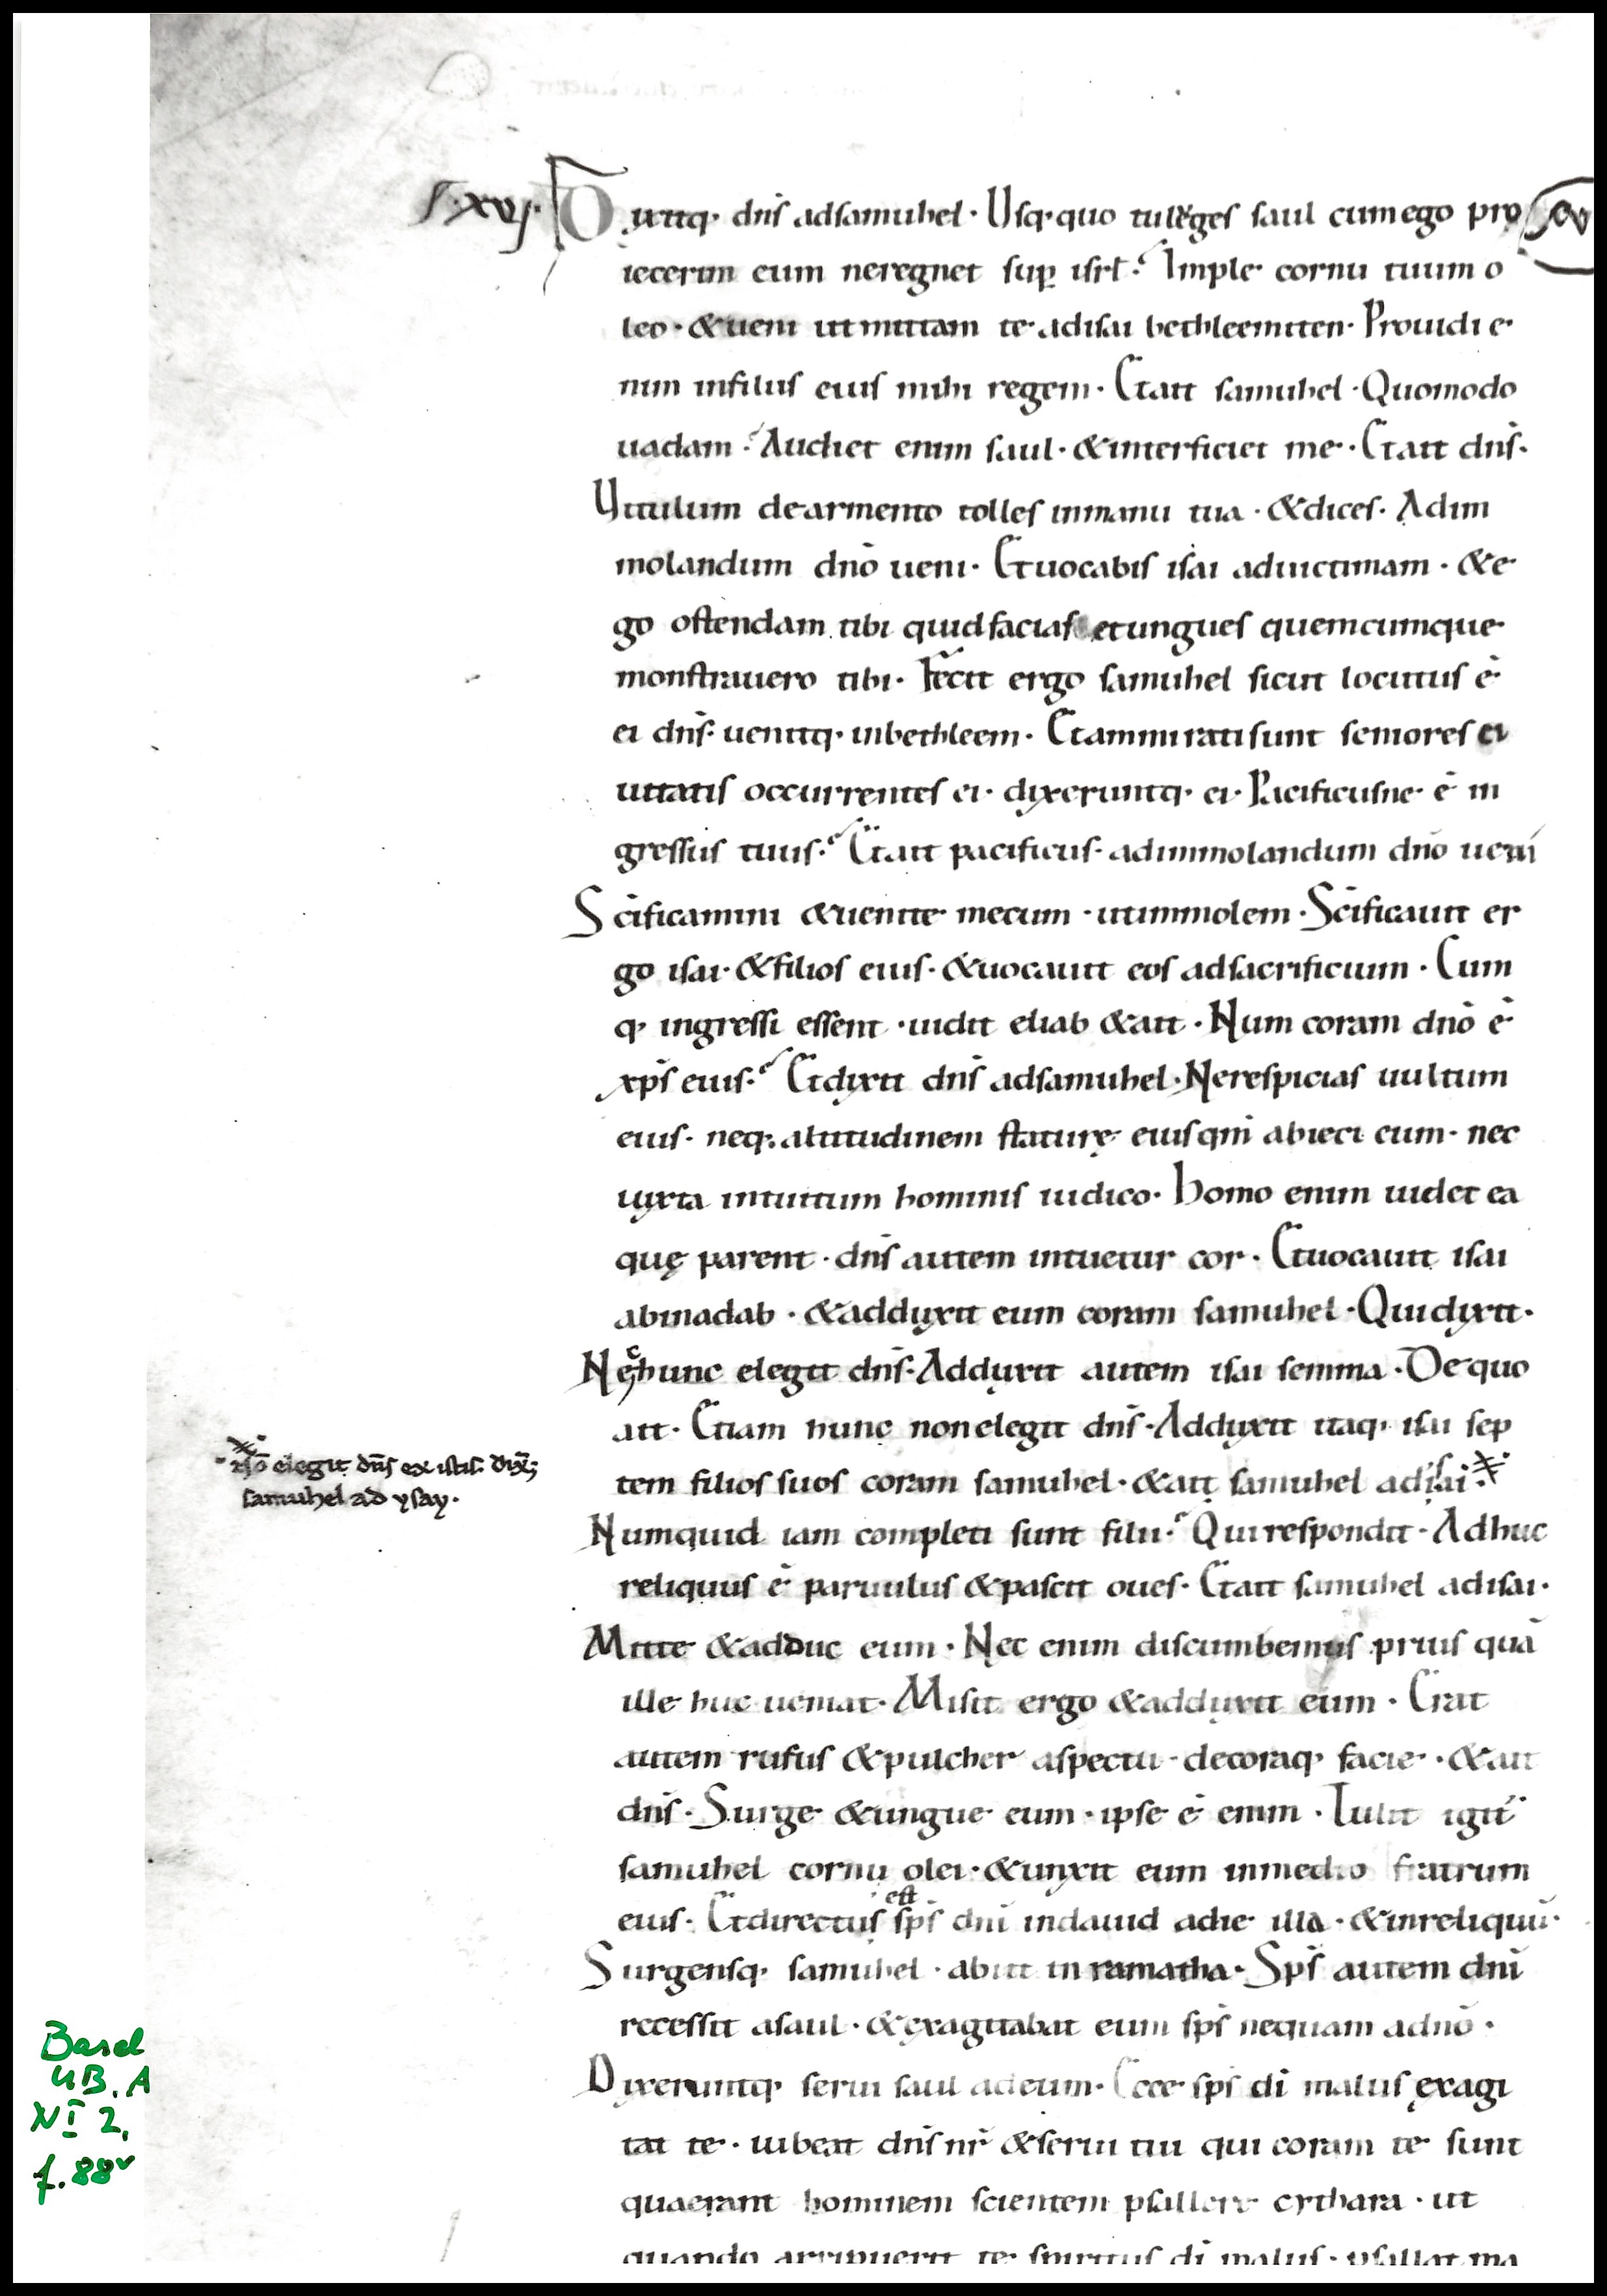 S. xvj. Dixitq; dnś ad samuhel · Usq; quo tu lẹges saul cum ego pro
iecerim eum ne regnet sup̱ isrł ? Imple cornu tuum o
leo · & ueni ut mittam te ad isai bethleemiten · Prouidi e
nim in filiis eius mihi regem · Et ait samuhel · Quomodo
uadam ? Audiet enim saul · & interficiet me · Et ait dnś ·
Vitulum de armento tolles in manu tua · & dices · Ad im
molandum dnō ueni · Et uocabis isai ad uictimam · & e
go ostendam tibi quid facias et ungues quemcumque
monstrauero tibi · Fecit ergo samuhel sicut locutus ē
ei dnś · uenitq; in bethleem · Et ammirati sunt seniores ci
uitatis occurrentes ei · dixeruntq; ei · Pacificusne ē in
gressus tuus ? Et ait pacificus · ad immolandum dnō ueni
Scīficamini & uenite mecum · ut immolem · Scīficauit er
go isai · & filios eius · & uocauit eos ad sacrificium · Cum
q; ingressi essent · uidit eliab & ait · Num coram dnō ē
xp̄s eius ? Et dixit dnś ad samuhel · Ne respicias uultum
eius · neq; altitudinem staturę eius qm̄ abieci eum · nec
iuxta intuitum hominis iudico · Homo enim uidet ea
quę parent · dnś autem intuetur cor · Et uocauit isai
abinadab · & adduxit eum coram samuhel · Qui dixit ·
Nec hunc elegit dnś · Adduxit autem isai semma · De quo
ait · Etiam hunc non elegit dnś · Adduxit itaq; isai sep
tem filios suos coram samuhel · & ait samuhel ad isai ·
· nō elegit dn̄s ex istis · dix̄;
samuhel ad ysay ·
Numquid iam completi sunt filii ? Qui respondit · Adhuc
reliquus ē paruulus & pascit oues · Et ait samuhel ad isai ·
Mitte & adduc eum · Nec enim discumbemus prius quā
ille huc ueniat · Misit ergo & adduxit eum · Erat
autem rufus & pulcher aspectu · decoraq; facie · & ait
dnś · Surge & ungue eum · ipse ē enim · Tulit igit̄
samuhel cornu olei · & unxit eum in medio fratrum
eius · Et directus est sp̄s dnī in dauid a die illa · & in reliquū ·
Surgensq; samuhel · abiit in ramatha · Sp̄s autem dnī
recessit a saul · & exagitabat eum sp̄s nequam a dnō ·
Dixeruntq; serui saul ad eum · Ecce sp̄s dī malus exagi
tat te · iubeat dnś nr̄ & serui tui qui coram te sunt
quaerant hominem scientem psallere cythara · ut
quando arripuerit te spiritus dī malus · psallat ma
Basel
UB. A
N I 2,
f. 88v